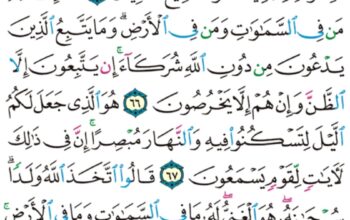 مَن فِي ٱلسَّمَٰوَٰتِ وَمَن فِي ٱلْأَرْضِ ۗ وَمَا يَتَّبِعُ ٱلَّذِينَ
يَدْعُونَ مِن دُونِ ٱللَّهِ شُرَكَآءَ ۚ إِن يَتَّبِعُونَ إِلَّا
ٱلظَّنَّ وَإِنْ هُمْ إِلَّا يَخْرُصُونَ ٦٦ هُوَ ٱلَّذِي جَعَلَ لَكُمُ
ٱلَّيْلَ لِتَسْكُنُوا۟ فِيهِ وَٱلنَّهَارَ مُبْصِرًا ۚ إِنَّ فِي ذَٰلِكَ
لَءَايَٰتٍ لِّقَوْمٍ يَسْمَعُونَ ٦٧ قَالُوا۟ ٱتَّخَذَ ٱللَّهُ وَلَدًا ۗ
هُوَ ٱلْغَنِيُّ ۖ لَهُۥ مَا فِي ٱلسَّمَٰوَٰتِ وَمَا فِي ٱلْأَرْضِ